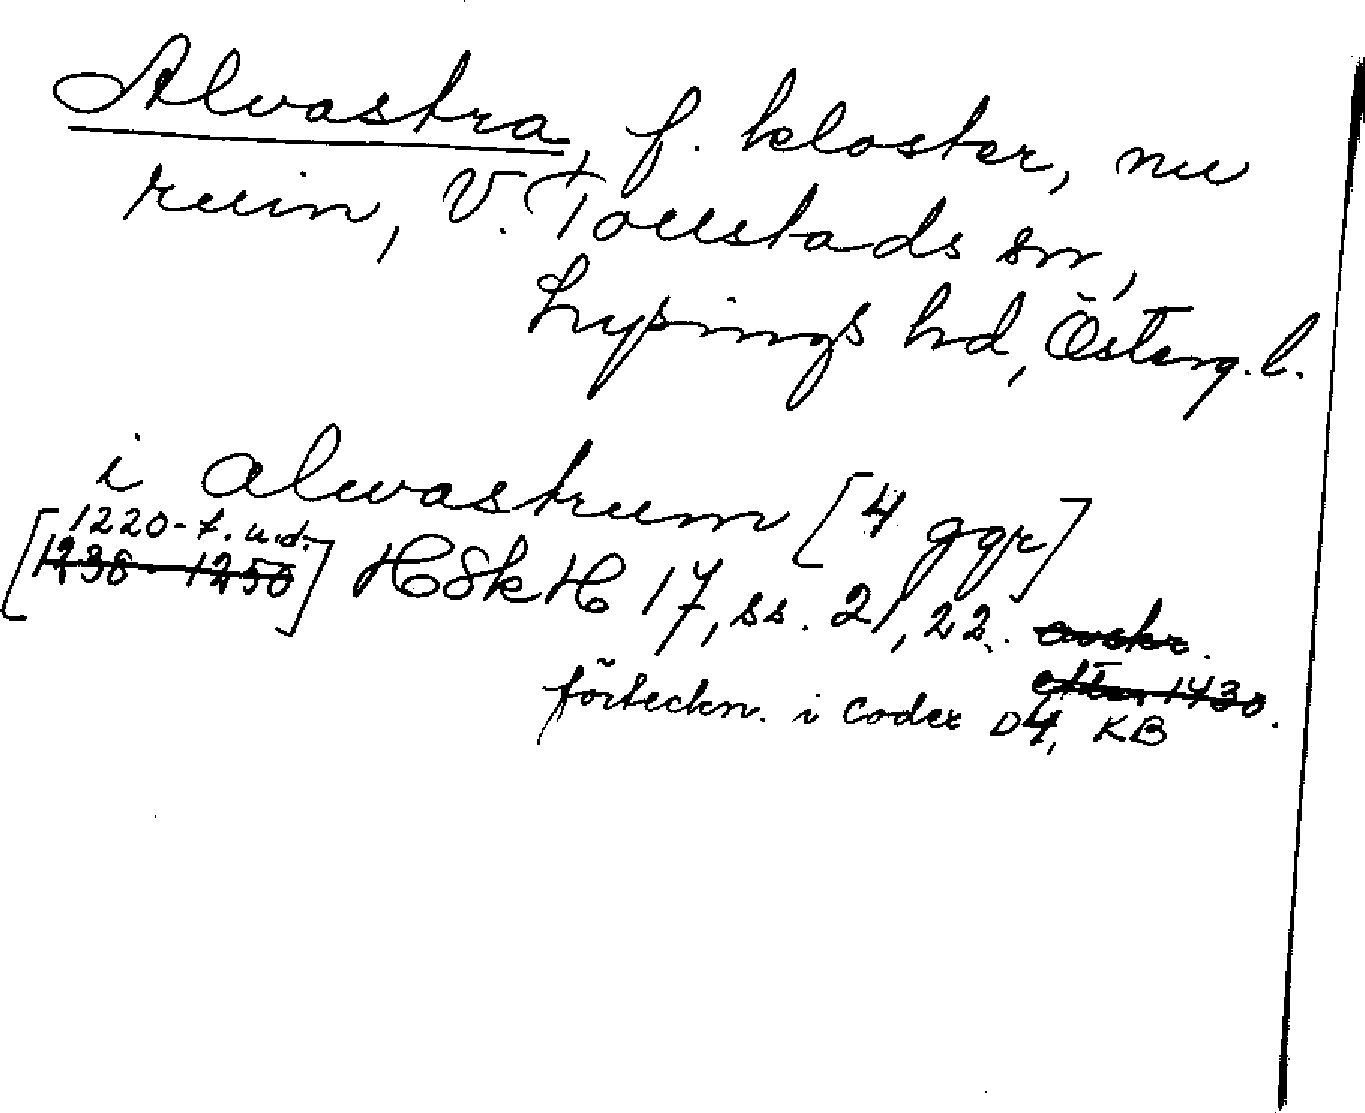 Alvastra, f. kloster, nu
ruin, V. Tollstads sn,
Lysings hd, Österg. l.
i alwastrum [4 ggr]
[1220-t. u.d.
1236-1250] HSkH 17, ss. 21, 22. avskr.
efter 1430.
förteckn. i codex D4, KB